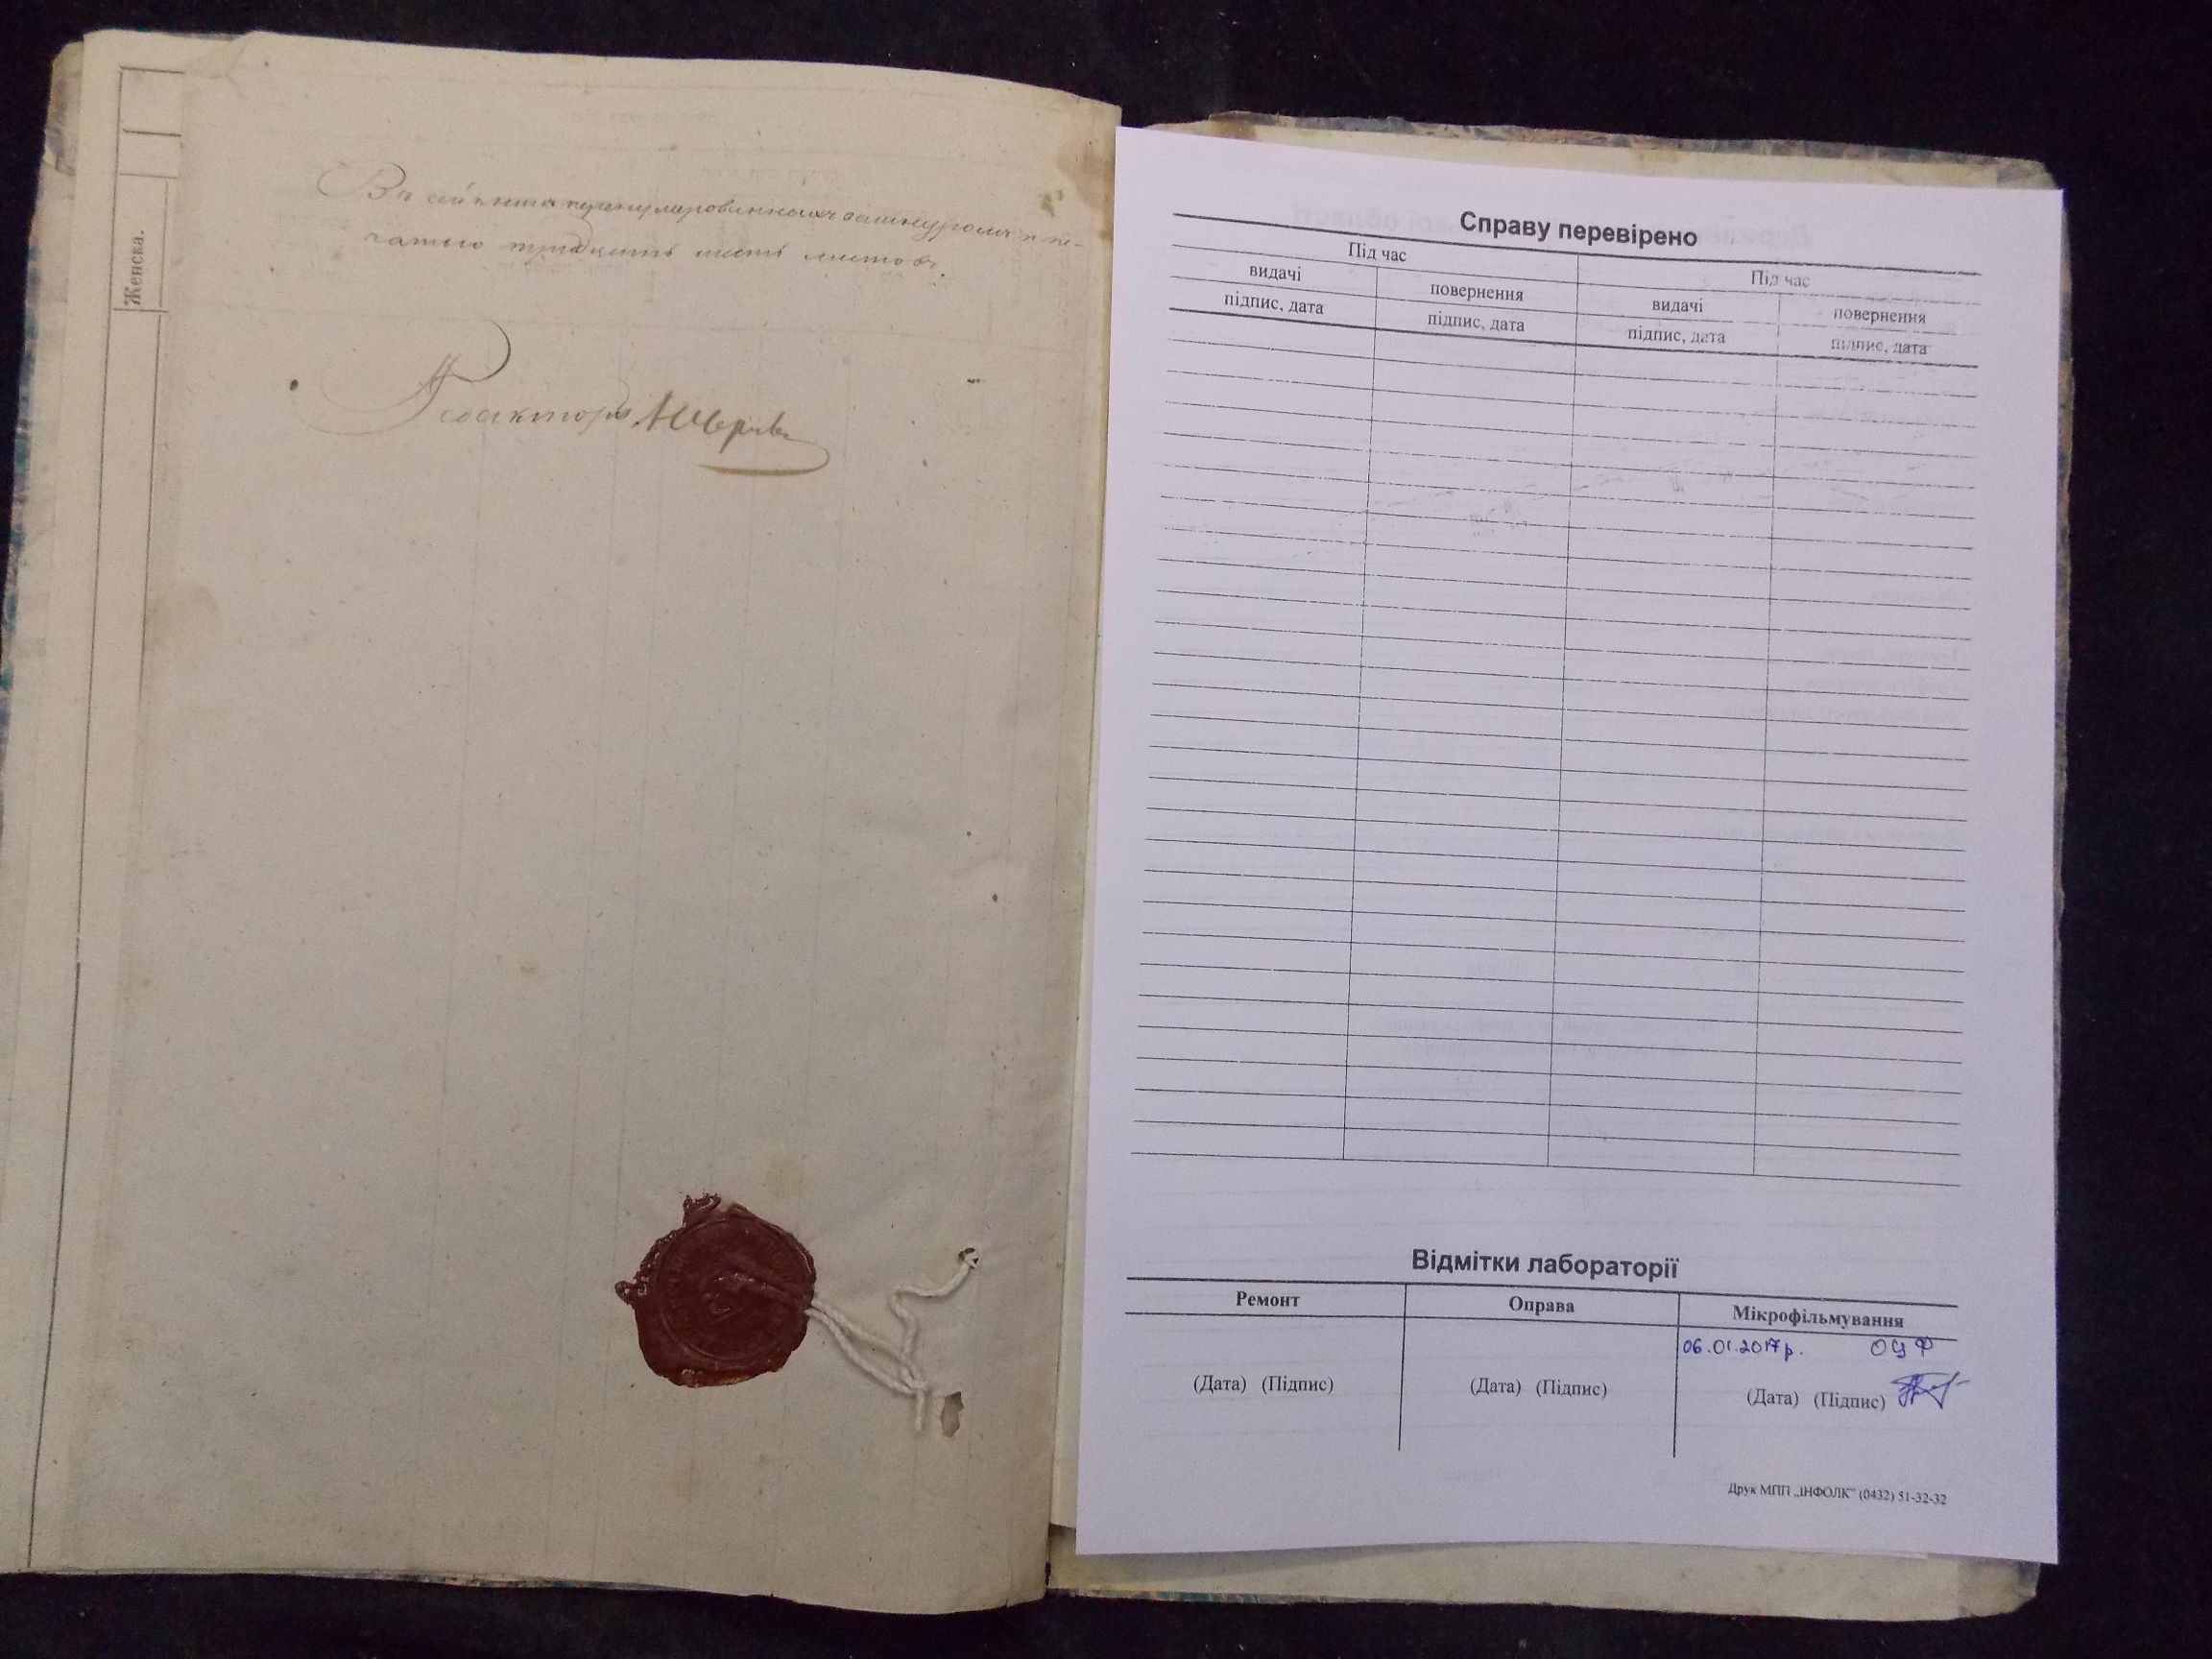 Женска.
Въ сей книгѣ пронумерованныхъ за шнуромъ и пе-
чатью тридцать шесть листовъ.
Редакторъ
Справу перевірено
Під час
Під час
видачі
повернення
видачі
повернення
підпис, дата
підпис, дата
підпис, дата
підпис, дата
Відмітки лабораторії
Ремонт
Оправа
Мікрофільмування
06.01.2017р. ОЦФ
(Дата) (Підпис)
(Дата) (Підпис)
(Дата) (Підпис)
Друк МПП „ІНФОЛК” (0432) 51-32-32